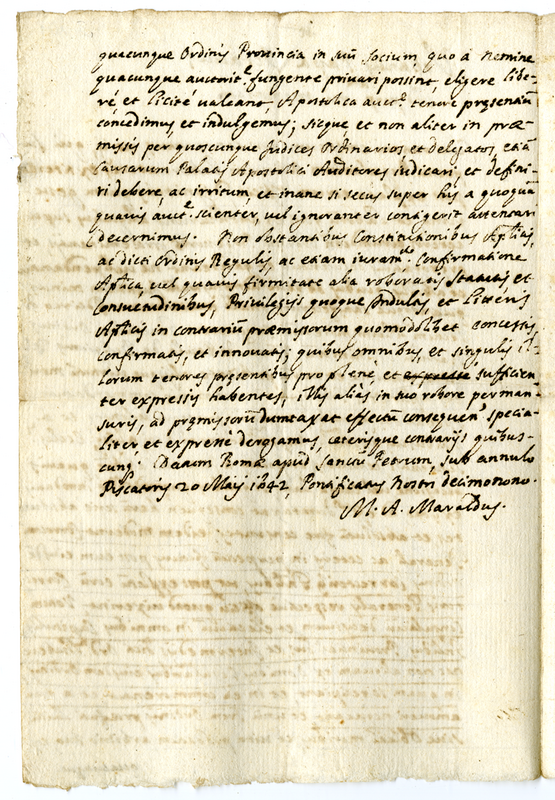 quacunque Ordinis Provincia in suũ socium, quo à nemine
quacunque auctorit.e fungente privari possint, eligere libe-
rè, et licitè valeant, Apostolica auct.e tenore præsentiũ
concedimus, et indulgemus; sicque, et non aliter in præ-
missis per quoscunque Judices Ordinarios, et delegatos, etiã
Causarum Palatij Apostolici Auditores iudicari, et defini-
ri debere, ac irritum, et inane si secus super his a quoquã
quavis auct.e scienter, vel ignoranter contigerit attentari
Decernimus. Non obstantibus Constitutionibus Aplicis,
ac dicti Ordinis Regulis, ac etiam iuram.to Confirmatione
Aplica, vel quavis firmitate alia roboratis Statutis et
Consuetudinibus, Privilegijs quoque Indultis, et Litteris
Aplicis in contrariũ præmissorum quomodolibet concessis,
confirmatis, et innovatis; quibus omnibus et singulis il-
lorum tenores præsentibus pro plenè, et sufficien-
ter expressis habentes, illis aliàs in suo robore perman-
suris, ad præmissorũ dumtaxat effectũ consequen. specia-
liter, et expressè derogamus, cæterisque contrarijs quibus-
cunq. Datum Romæ apud Sanctũ Petrum, sub annulo
Piscatoris 20 Maij 1642, Pontificatus Nostri decimonono.
M. A. Maraldus.